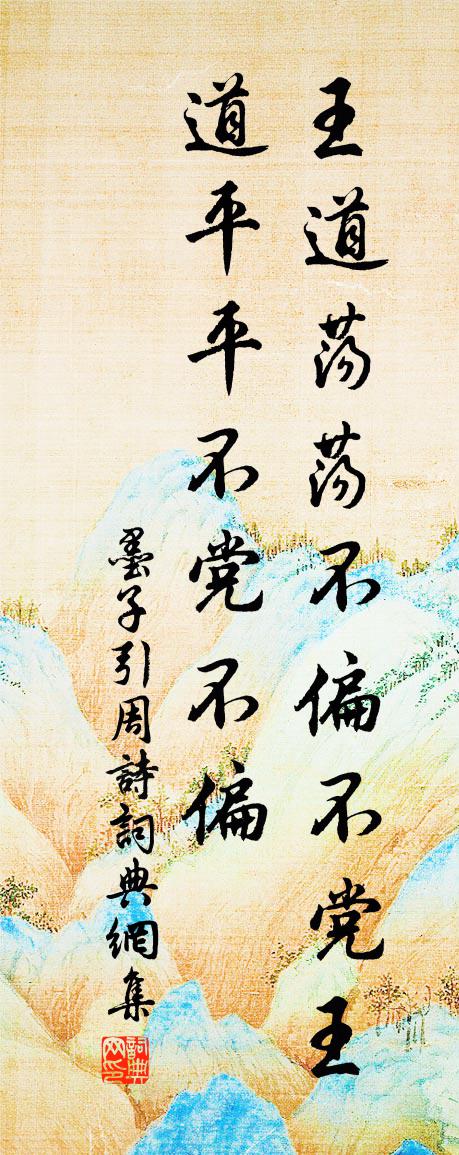 王道荡荡不偏不党王
道平平不党不偏
墨子引周詩詞典網集
詞典网印